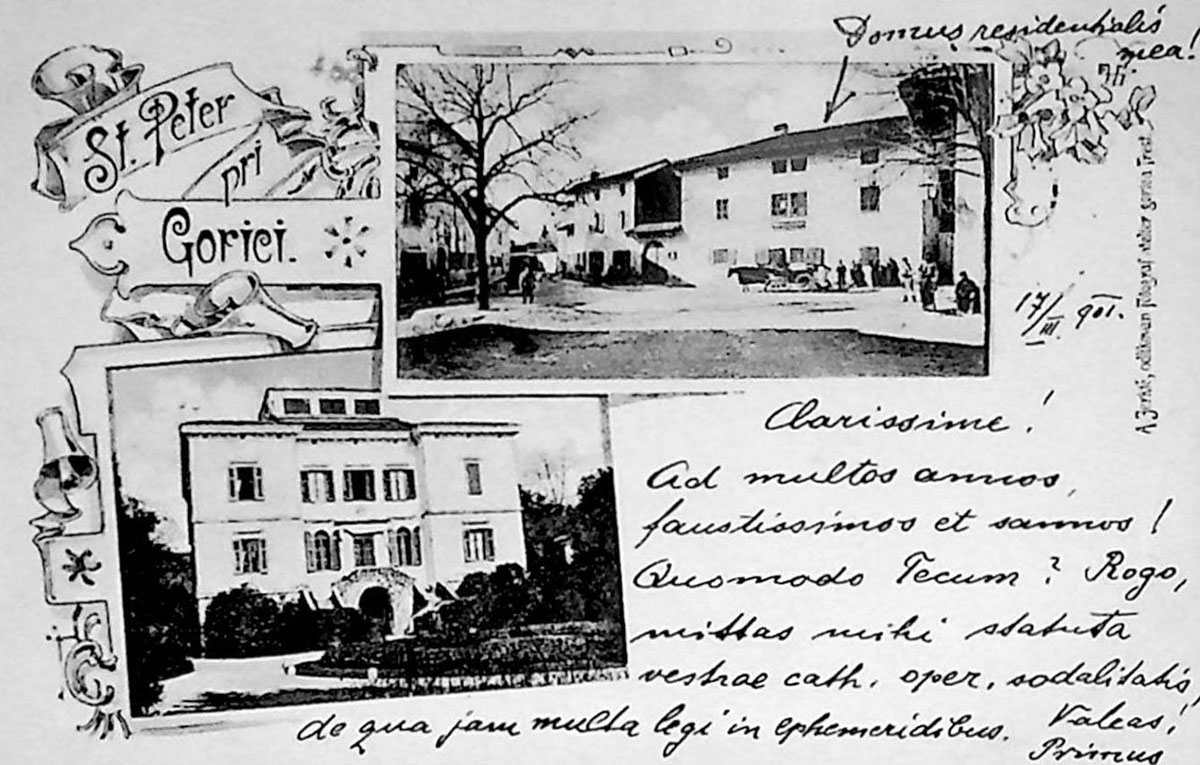 Domus residentialis
mea!
St. Peter
pri
Gorici.
17/III 901.
Clarissime!
Ad multos annos,
faustissimos et sannos!
Quomodo Tecum? Rogo,
mittas mihi statuta
vestrae cath. oper. sodalitatis,
de qua jam multa legi in ephemeridibus.
Valeas!
Primus
fotograf